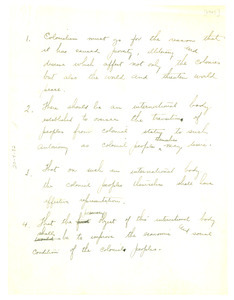 1. Colonialism must go for the reasons that
it has caused poverty, illiteracy and
disease which affect not only the colonies
but also the world and threaten world
peace.
2. There should be an international body
established to the of
peoples from colonial status to such
autonomy as colonial peoples may desire.
3. That on such an international body
the colonial peoples themselves shall have
effective representation.
4. That the object of this international body
shall be to improve the economic and social
condition of the colonial peoples.